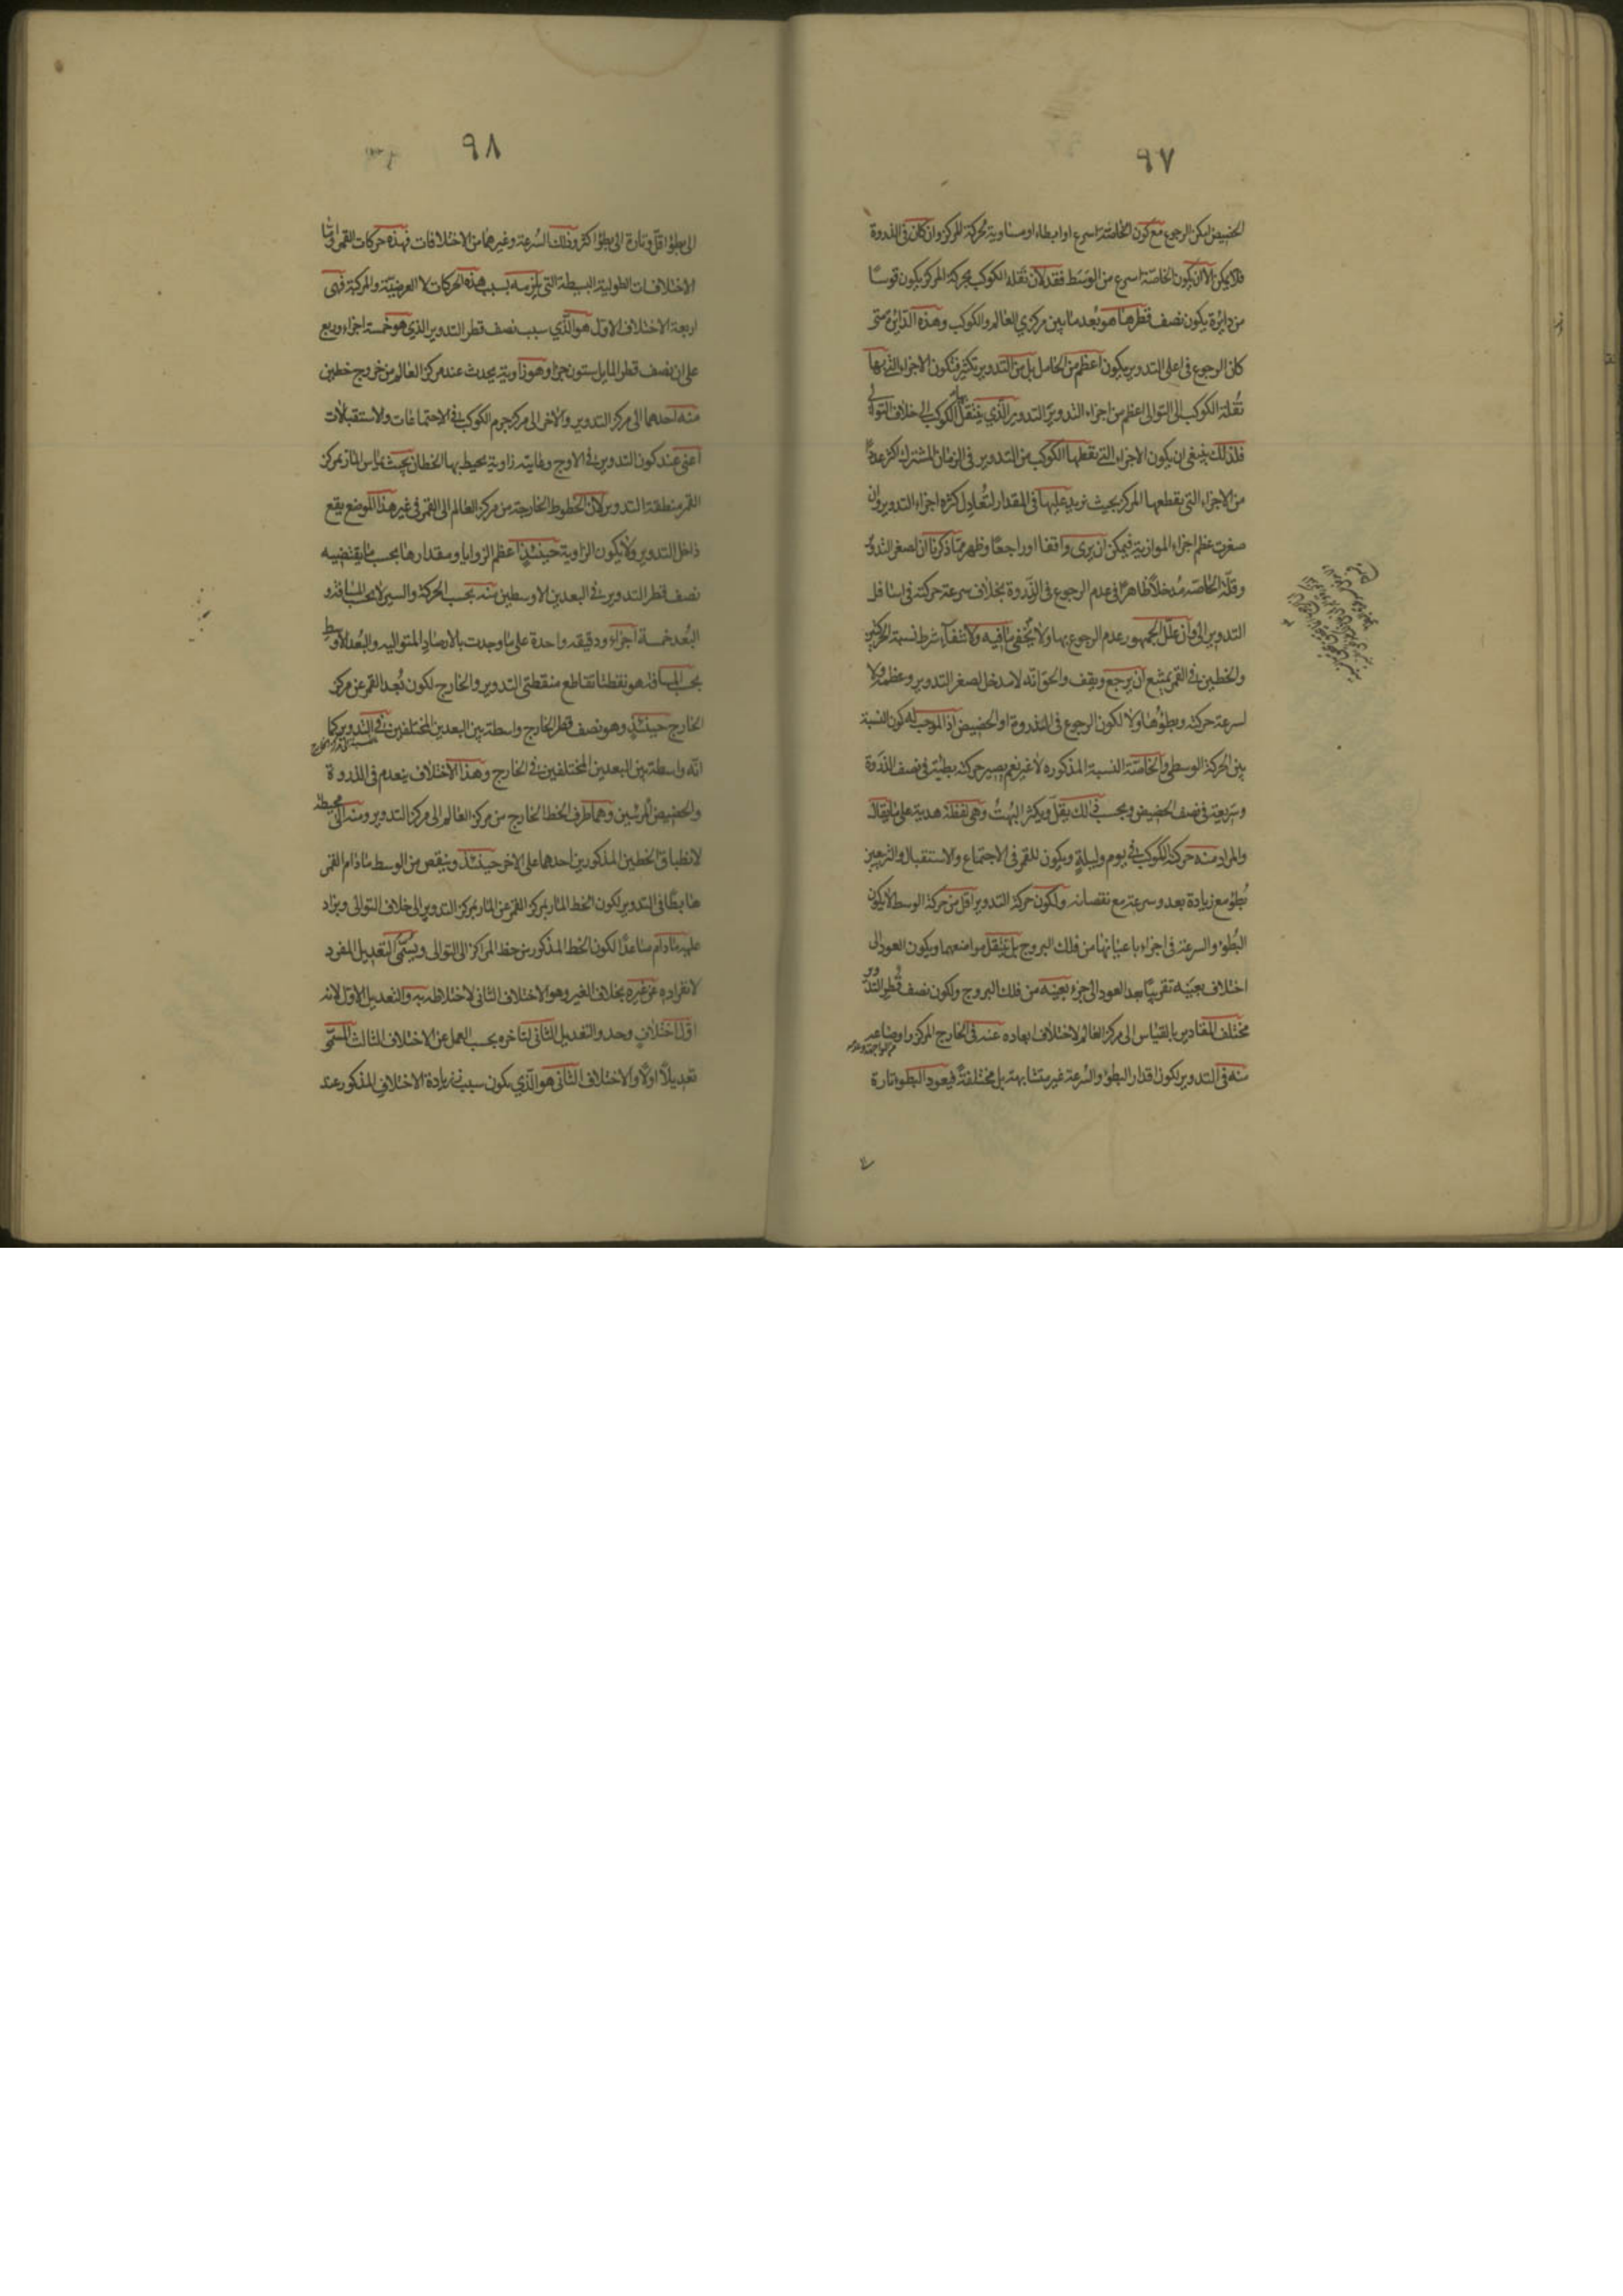 ٩٧
الحضيض لیكن الرجوع مع كون الخاصة اسرع او ابطاء او مساوية لحركة المركز وان كان فی الذروة
فلا يمكن الا ان يكون الخاصّة اسرع من الوسط فقد لان نقلة الكوكب بحركة المركز يكون قوسًا
من دايرة يكون نصف قطرها هو بُعد ما بين مركزي العالم والكوكب وهذه الدائرة متى
كان الرجوع فی اعلی التدوير يكون اعظم من الحامل بل من التدوير بكثير فتكون الاجزاء التي بها
نُقلة الكوكب الى التوالى اعظم من اجزاء التدوير الذي ينتقل بها الكوكب الى خلاف التوالي
فلذلك ينبغى ان يكون الاجزاء التي يقطعها الكوكب من التدوير فی الزمان المشترك اكثر عددًا
من الاجزاء التى يقطعها المركز بحيث تزيد عليها فی المقدار لتُعادل كثرة اجزاء التدوير وان
صغرت عظم اجزاء الموازية فيمكن ان يرى واقفا او راجعًا وظهر ممّا ذكرنا ان لصغر التدوير
وقلّة الخاصّة مُدخلًا ظاهرًا فی عدم الرجوع فی الذّروة بخلاف سرعة حركته فی اسافل
التدوير الى وان علّل الجمهور عدم الرجوع بها ولا يخفى ما فيه ولانتفاء شرط نسبة الحركتين
والخطين فی القمر يمتنع ان يرجع ويقف والحق انّه لا مدخل لصغر التدوير وعظمه ولا
لسرعة حركته وبطؤها ولا لكون الرجوع فی الذروة او الحضيض اذ الموجب له كون النسبة
بين الحركة الوسطى والخاصّة النسبة المذكوره لا غير نعم يصير حركته بطيئة فی نصف الذّروة
وسريعة فی نصف الحضيض وبحسب ذلك يقلّ ويكثر البُهتُ وهى لفظة هندية على ما يقال
والمراد منه حركة الكوكب فی يوم وليلةٍ ويكون للقمر فی الاجتماع والاستقبال والتربيعين
بُطؤ مع زيادة بعد وسرعة مع نقصانه ولكون حركة التدوير اقل من حركة الوسط لا يكون
البُطؤ والسرعة فی اجزاء باعيانها من فلك البروج بل ينتقل مواضعهما ويكون العود الى
اختلاف بعينه تقريبًا بعد العود الى جزء بعينه من فلك البروج ولكون نصف قُطر التدوير
مختلف المقادير بالقياس الى مركز العالم لاختلاف ابعاده عنه فی الخارج المركز واوضاعه
منه فی التدوير يكون اقدار البطؤ والسُرعة غير متشابهة بل مختلفةً فيعود البطوء تارة
٩٨
الى بطؤ اقلّ وتارة الى بطؤ اكثر وذلك السُرعة وغيرهما من الاختلافات فهذه حركات القمر وامّا
الاختلافات الطولية البسيطة التى يلزمه بسبب هذه الحركات لا العرضيّة والمركبة فهى
اربعة الاختلاف الاوّل هو الّذي بسبب نصف قطر التدوير الذي هو خمسة اجزاء وربع
على ان نصف قطر المايل ستون جزءا وهو زاوية يحدث عند مركز العالم من خروج خطين
منه احدهما الى مركز التدوير والاخر الى مركز جرم الكوكب فی الاجتماعات والاستقبالات
اعنى عند كون التدوير فی الاوج وغايته زاوية يحيط بها الخطان بحيث يماس المار بمركز
القمر منطقة التدوير لان الخطوط الخارجة من مركز العالم الى القمر فى غير هذا الموضع يقع
داخل التدوير ولا يكون الزاوية حينئذٍ اعظم الزوايا ومقدارها بحسب ما يقتضيه
نصف قطر التدوير فی البعدين الاوسطين منه بحسب الحركة والسير لا بحسب المسافة و
البُعد خمسة اجزاء ودقيقه واحدة على ما وجدت بالارصاد المتواليه والبُعد الاوسط
بحسب المسافة هو نقطتا تقاطع منقطتى التدوير والخارج لكون بُعد القمر عن مركز
الخارج حينئذٍ وهو نصف قطر الخارج واسطة بين البعدين المختلفين فی التدوير كما
انّه واسطة بين البعدين المختلفين فی الخارج وهذا الاختلاف ينعدم فی الذروة
والحضيض المرئيين وهما طرفا الخط الخارج من مركز العالم الى مركز التدوير ومنه الى محيطه
لانطباق الخطين المذكورين احدهما على الاخر حينئذ وينقص من الوسط ما دام القمر
هابطًا فی التدوير لكون الخط المار بمركز القمر عن المار بمركز التدوير الى خلاف التوالى ويزاد
عليه ما دام صاعدًا لكون الخط المذكور من خط المراكز الى التوالى ويسمّى التعديل المفرد
لانفراده عن غيره بخلاف الغير وهو الاختلاف الثانى لاختلاطه به والتعديل الاوّل لانه
اوّل اختلافٍ وجد والتعديل الثانى لتاخره بحسب العمل عن الاختلاف الثالث المسمّى
تعديلًا اولًا والاختلاف الثانى هو الّذي يكون بسبب زيادة الاختلاف المذكور عند